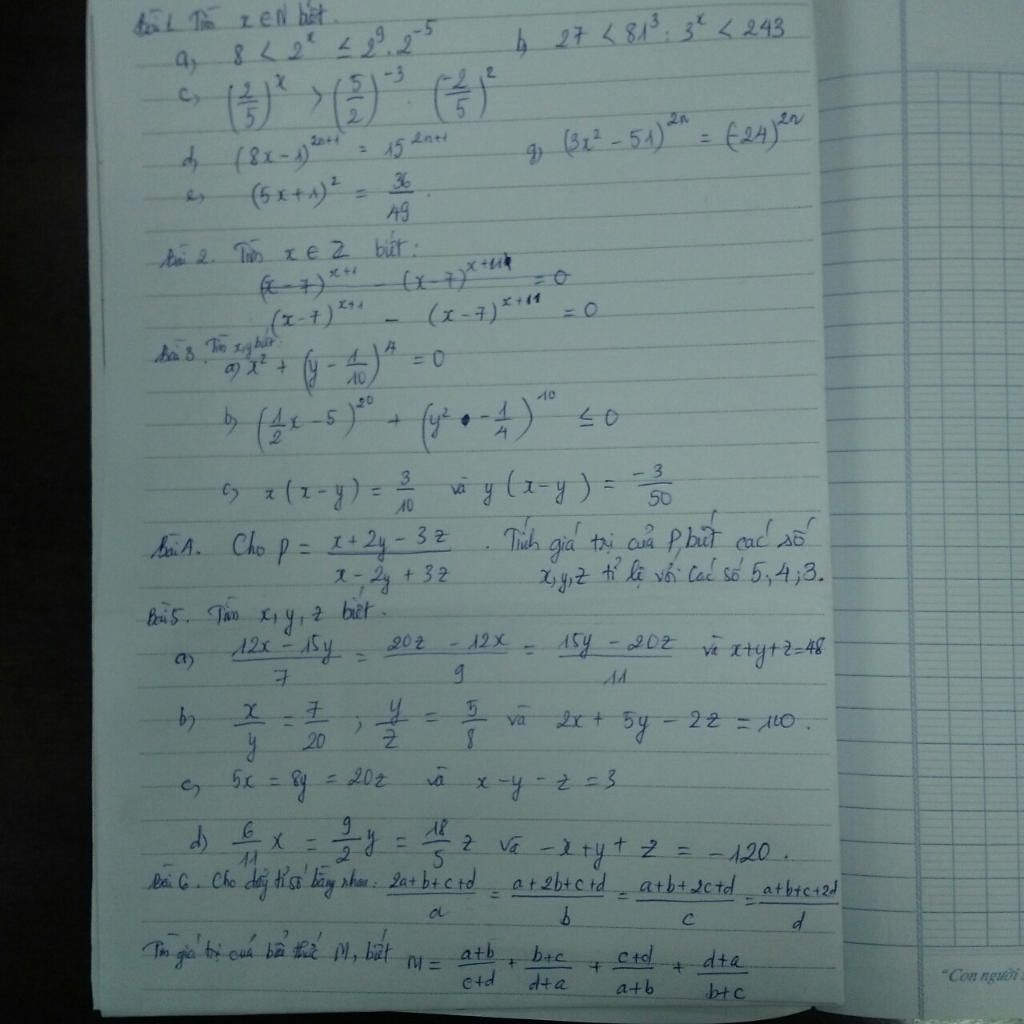 Bài 1. Tìm x ∈ N biết.
a, 8 < 2^x ≤ 2^9 . 2^-5    b, 27 < 81^3 : 3^x < 243
c, (2/5)^x > (5/2)^-3 . (-2/5)^2
d, (8x - 1)^(2n+1) = 15^(2n+1)    g, (3x² - 51)^(2n) = (-24)^(2n)
e, (5x + 1)² = 36/49.
Bài 2. Tìm x ∈ Z biết:
(x - 7)^(x+1) - (x - 7)^(x+11) = 0
(x - 7)^(x+1) - (x - 7)^(x+11) = 0
Bài 3. Tìm x, y biết:
a) x² + (y - 1/10)^4 = 0
b) (1/2 x - 5)^20 + (y² - 1/4)^10 ≤ 0
c) x(x - y) = 3/10 và y(x - y) = -3/50
Bài 4. Cho P = (x + 2y - 3z)/(x - 2y + 3z). Tính giá trị của P, biết các số
x, y, z tỉ lệ với các số 5; 4; 3.
Bài 5. Tìm x, y, z biết.
a) (12x - 15y)/7 = (20z - 12x)/9 = (15y - 20z)/11 và x+y+z=48
b) x/y = 7/20 ; y/z = 5/8 và 2x + 5y - 2z = 100.
c, 5x = 8y = 20z và x - y - z = 3
d) 6/11 x = 9/2 y = 18/5 z và -x + y + z = -120.
Bài 6. Cho dãy tỉ số bằng nhau: (2a+b+c+d)/a = (a+2b+c+d)/b = (a+b+2c+d)/c = (a+b+c+2d)/d
Tìm giá trị của M, biết M = (a+b)/(c+d) + (b+c)/(d+a) + (c+d)/(a+b) + (d+a)/(b+c)
"Con người